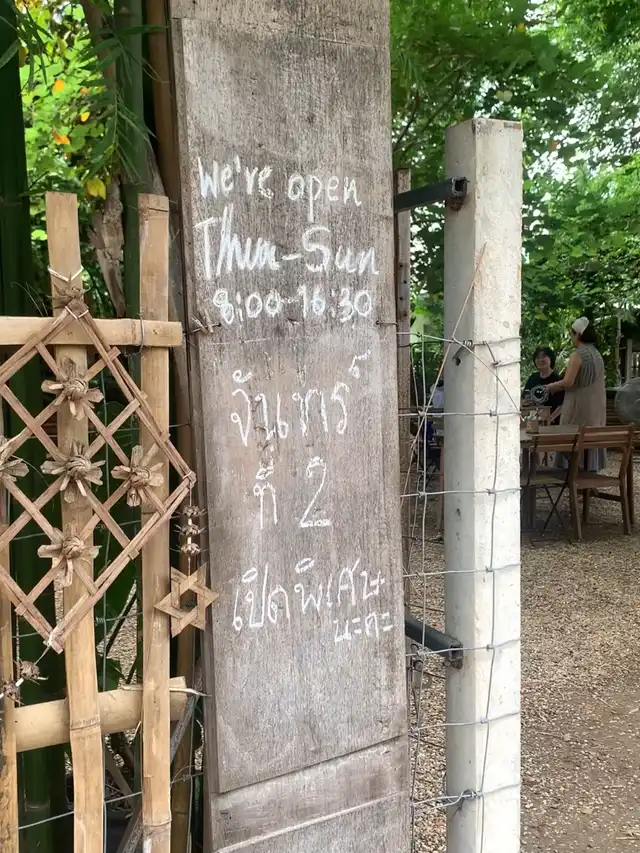 We're open
Thur-Sun
8:00-16:30
จันทร์
ที่ 2
เปิดพิเศษ
นะคะ